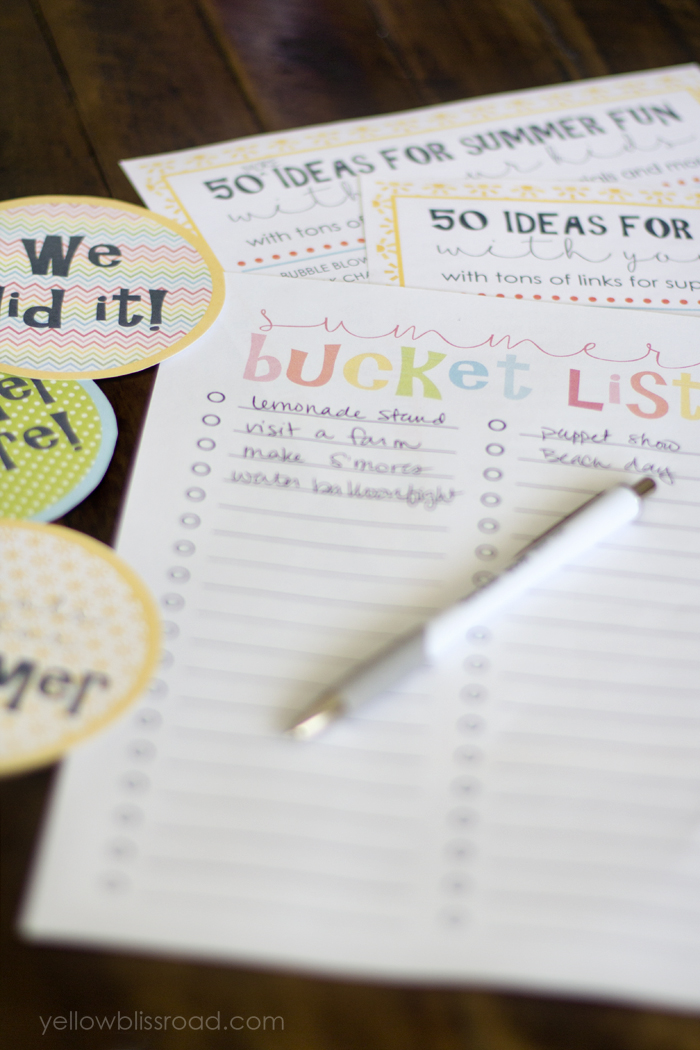 50 IDEAS FOR SUMMER FUN
with your kids
with tons of
BUBBLE BLOW
50 IDEAS FOR
with yo
with tons of links for sup
We
did it!
re!
summer
BUCKET LIST
lemonade stand
visit a farm
make s'mores
water balloon fight
puppet show
Beach day
mer
yellowblissroad.com